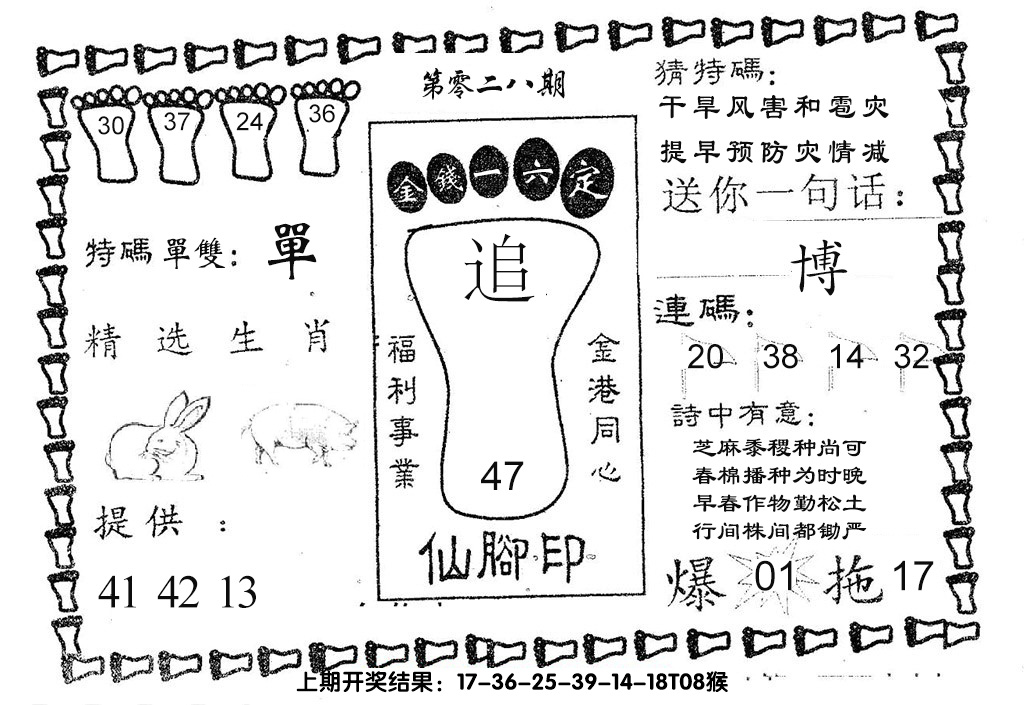 第零二八期
30 37 24 36
特碼單雙：單
精选生肖
提供：
41 42 13
金錢一六定
追
福利事業
金港同心
47
仙腳印
猜特碼：
干旱风害和雹灾
提早预防灾情减
送你一句话：
博
連碼：
20 38 14 32
詩中有意：
芝麻黍稷种尚可
春棉播种为时晚
早春作物勤松土
行间株间都锄严
爆 01 拖 17
上期开奖结果：17-36-25-39-14-18T08猴